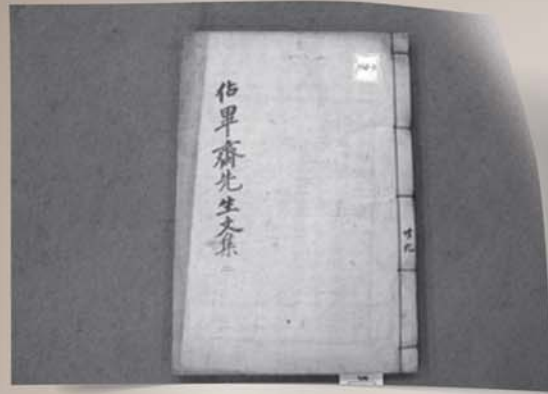 佔畢齋先生文集二